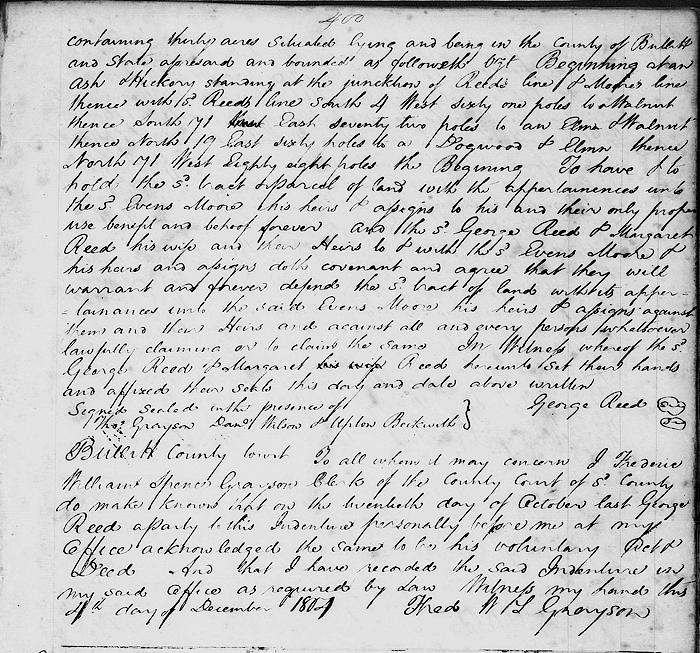 400
containing thirty acres Situated lying and being in the County of Bullitt
and State aforesaid and bounded as followeth Vizt Beginning at an
Ash & Hickory standing at the juncktion of Reeds line & Moores line
thence with sd Reeds line South 4 West sixty one poles to a Walnut
thence South 71 East seventy two poles to an Elmn & Walnut
thence North 19 East sixty poles to a Dogwood & Elmn thence
North 71 West Eighty eight poles the Begining To have & to
hold the sd tract & parcel of land with the appertainences unto
the sd Evens Moore his heirs & assigns to his and their only proper
use benefit and behoof forever and the sd George Reed & Margaret
Reed his wife and their Heirs to & with the sd Evens Moore &
his heirs and assigns doth covenant and agree that they will
warrant and forever defend the sd tract of land with its apper-
-tainances unto the said Evens Moore his heirs & assigns against
them and their Heirs and against all and every persons whatsoever
lawfully claiming or to claim the same In Witness whereof the sd
George Reed & Margaret his wife Reed hereunto Set their hands
and affixed their Seals this day and date above written
Signed Sealed in the presence of George Reed
Thos Grayson Danl Wilson & Upton Beckwith
Bullitt County Court To all whom it may concern I Frederic
William Spencer Grayson Clerk of the County Court of sd County
do make known that on the twentieth day of October last George
Reed a party to this Indenture personally before me at my
Office acknowledged the same to be his voluntary Act &
Deed And that I have recorded the said Indenture in
my said Office as required by Law Witness my hand this
4th day of December 1804 Fred W S Grayson